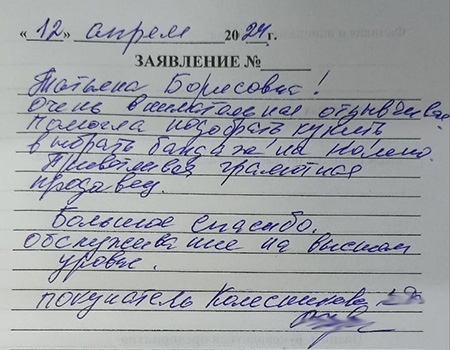 «12» апрель 2024 г.
ЗАЯВЛЕНИЕ №
Татьяна Борисовна!
очень внимательная отзывчивая
помогла подобрать купить
выбрать бандаж на колено.
Приветливая грамотная
продавец.
Большое спасибо.
Обслуживание на высшем
уровне.
покупатель Колесникова